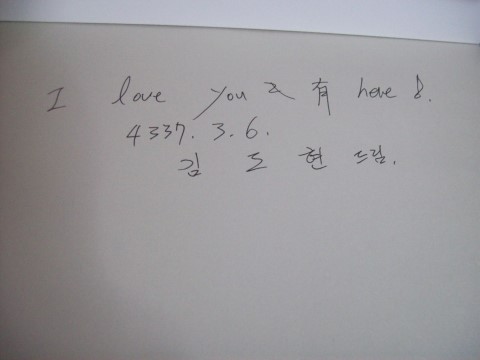 I love you 有 have
4337. 3. 6.
김 도 현 드림.